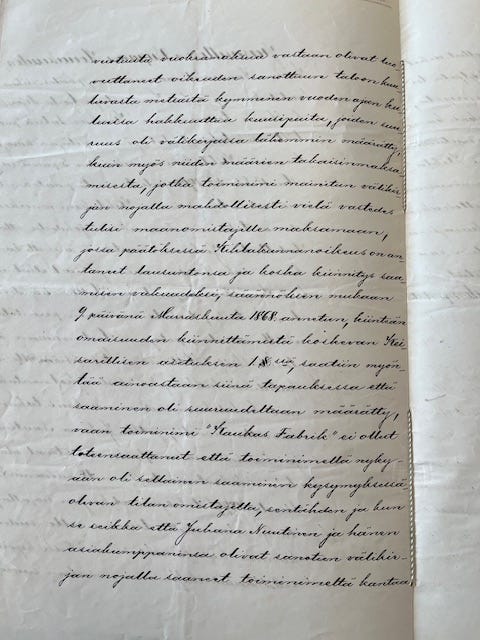 vuotuista vuokramaksua vastaan olivat luo
vuttaneet oikeuden sanottuun taloon kuu
luvasta metsästä kymmenen vuoden ajan ku
luissa hakkuuttaa kuusipuita, joiden suu
ruus oli välikirjassa lähemmin määrätty,
kuin myös niiden määrien takaisinmaksa
misesta, jotka toiminimi mainitun välikir
jan nojalla mahdollisesti vielä vastedes
tulisi maanomistajille maksamaan,
jossa päätöksessä Kihlakunnanoikeus on an-
tanut lausuntonsa ja koska kiinnitys saa-
misen vakuudeksi, säännöksen mukaan
9 päivänä Marraskuuta 1868 annetun, kiinteän
omaisuuden kiinnittämistä koskevan Kei-
sarillisen asetuksen 1 § ssä, saatiin myön-
tää ainoastaan siinä tapauksessa että
saaminen oli suuruudeltaan määrätty,
vaan toiminimi "Kaukas Fabrik" ei ollut
toteensaattanut että toiminimellä nyky-
ään oli sellainen saaminen kysymyksessä
olevan tilan omistajalta, sentähden ja kun
se seikka että Juhana Nuutinen ja hänen
asiakumppaninsa olivat sanotun välikir-
jan nojalla saaneet toiminimeltä kantaa